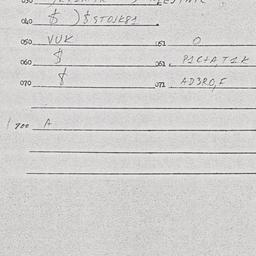 040 $ )$STOJK81
050 VUK 051 0
060 $ 061 P1C+A,T1K
070 $ 071 AD3RO,F
700 A